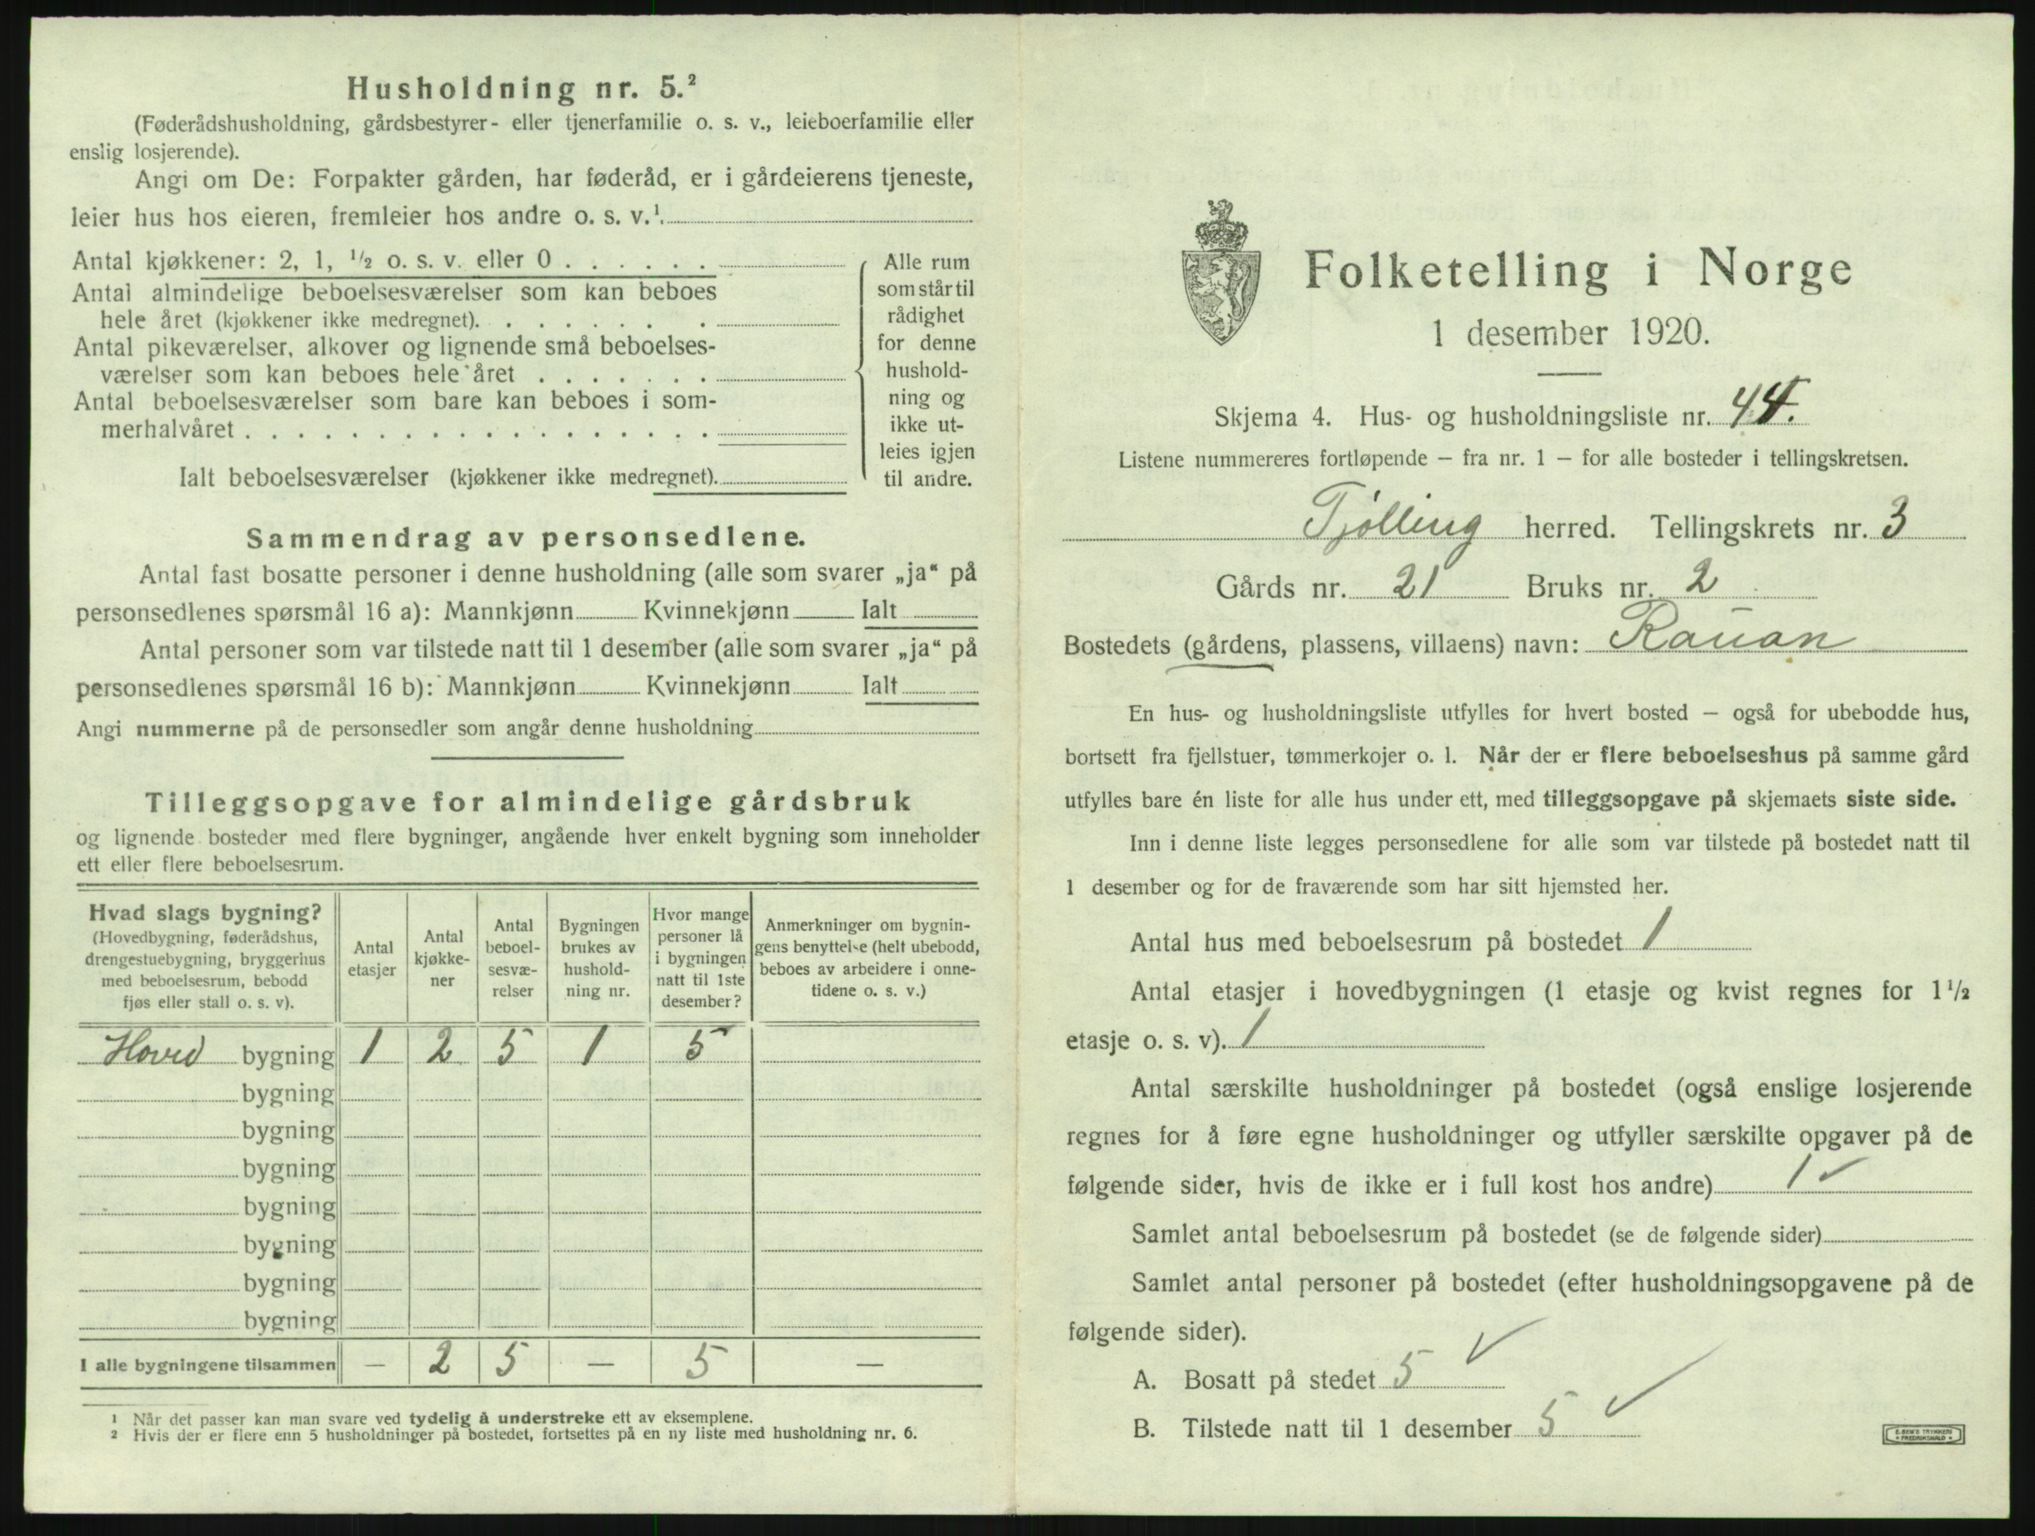 Husholdning nr. 5.²
(Føderådshusholdning, gårdsbestyrer- eller tjenerfamilie o. s. v., leieboerfamilie eller
enslig losjerende).
Angi om De: Forpakter gården, har føderåd, er i gårdeierens tjeneste,
leier hus hos eieren, fremleier hos andre o. s. v.¹
Antal kjøkkener: 2, 1, ¹/₂ o. s. v. eller 0 . . . . . .
Antal almindelige beboelsesværelser som kan beboes
hele året (kjøkkener ikke medregnet). . . . . . . .
Antal pikeværelser, alkover og lignende små beboelses-
værelser som kan beboes hele året . . . . . . .
Antal beboelsesværelser som bare kan beboes i som-
merhalvåret . . . . . . . . . . . . . . . . . .
Ialt beboelsesværelser (kjøkkener ikke medregnet).
Alle rum
som står til
rådighet
for denne
hushold-
ning og
ikke ut-
leies igjen
til andre.
Sammendrag av personsedlene.
Antal fast bosatte personer i denne husholdning (alle som svarer „ja“ på
personsedlenes spørsmål 16 a): Mannkjønn Kvinnekjønn Ialt
Antal personer som var tilstede natt til 1 desember (alle som svarer „ja“ på
personsedlenes spørsmål 16 b): Mannkjønn Kvinnekjønn Ialt
Angi nummerne på de personsedler som angår denne husholdning
Tilleggsopgave for almindelige gårdsbruk
og lignende bosteder med flere bygninger, angående hver enkelt bygning som inneholder
ett eller flere beboelsesrum.
Hvad slags bygning?
(Hovedbygning, føderådshus,
drengestuebygning, bryggerhus
med beboelsesrum, bebodd
fjøs eller stall o. s. v).
Antal
etasjer
Antal
kjøkke-
ner
Antal
beboel-
sesvæ-
relser
Bygningen
brukes av
hushold-
ning nr.
Hvor mange
personer lå
i bygningen
natt til 1ste
desember?
Anmerkninger om bygnin-
gens benyttelse (helt ubebodd,
beboes av arbeidere i onne-
tidene o. s. v.)
Hoved bygning 1 2 5 1 5
bygning
bygning
bygning
bygning
bygning
bygning
bygning
I alle bygningene tilsammen — 2 5 — 5 —
¹ Når det passer kan man svare ved tydelig å understreke ett av eksemplene.
² Hvis der er flere enn 5 husholdninger på bostedet, fortsettes på en ny liste med husholdning nr. 6.
Folketelling i Norge
1 desember 1920.
Skjema 4. Hus- og husholdningsliste nr. 44.
Listene nummereres fortløpende – fra nr. 1 – for alle bosteder i tellingskretsen.
Tjølling herred. Tellingskrets nr. 3
Gårds nr. 21 Bruks nr. 2
Bostedets (gårdens, plassens, villaens) navn: Rauan
En hus- og husholdningsliste utfylles for hvert bosted – også for ubebodde hus,
bortsett fra fjellstuer, tømmerkojer o. l. Når der er flere beboelseshus på samme gård
utfylles bare én liste for alle hus under ett, med tilleggsopgave på skjemaets siste side.
Inn i denne liste legges personsedlene for alle som var tilstede på bostedet natt til
1 desember og for de fraværende som har sitt hjemsted her.
Antal hus med beboelsesrum på bostedet 1
Antal etasjer i hovedbygningen (1 etasje og kvist regnes for 1¹/₂
etasje o. s. v). 1
Antal særskilte husholdninger på bostedet (også enslige losjerende
regnes for å føre egne husholdninger og utfyller særskilte opgaver på de
følgende sider, hvis de ikke er i full kost hos andre) 1 ✓
Samlet antal beboelsesrum på bostedet (se de følgende sider)
Samlet antal personer på bostedet (efter husholdningsopgavene på de
følgende sider).
A. Bosatt på stedet 5 ✓
B. Tilstede natt til 1 desember 5 ✓